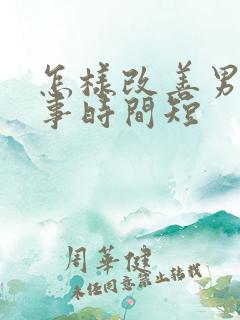 怎樣改善男
事時間短
周華健
未經同意禁止轉載